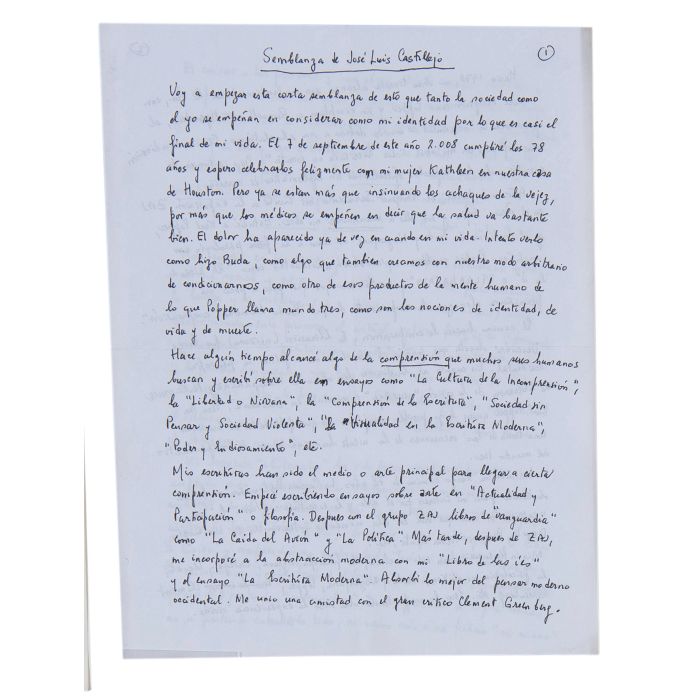 Semblanza de José Luis Castillejo
1
Voy a empezar esta corta semblanza de esto que tanto la sociedad como
el yo se empeñan en considerar como mi identidad por lo que es casi el
final de mi vida. El 7 de septiembre de este año 2.008 cumpliré los 78
años y espero celebrarlos felizmente con mi mujer Kathleen en nuestra casa
de Houston. Pero ya se estan más que insinuando los achaques de la vejez,
por más que los médicos se empeñen en decir que la salud va bastante
bien. El dolor ha aparecido ya de vez en cuando en mi vida. Intento verlo
como hizo Buda, como algo que tambien creamos con nuestro modo arbitrario
de condicionarnos, como otro de esos productos de la mente humano de
lo que Popper llama mundo tres, como son las nociones de identidad, de
vida y de muerte.
Hace algún tiempo alcancé algo de la comprensión que muchos seres humanos
buscan y escribí sobre ella en ensayos como "La Cultura de la Incomprensión",
la "Libertad o Nirvana", la "Comprensión de la Escritura", "Sociedad sin
Pensar y Sociedad Violenta", "La Visualidad en la Escritura Moderna",
"Poder y Endiosamiento", etc.
Mis escrituras han sido el medio o arte principal para llegar a cierta
comprensión. Empecé escribiendo ensayos sobre arte en "Actualidad y
Participación" o filosofía. Despues con el grupo ZAJ libros de "vanguardia"
como "La Caida del Avión" y "La Política" Más tarde, despues de ZAJ,
me incorporé a la abstracción moderna con mi "Libro de las íes"
y el ensayo "La Escritura Moderna". Absorbí lo mejor del pensar moderno
occidental. Me unio una amistad con el gran critico Clement Greenberg.